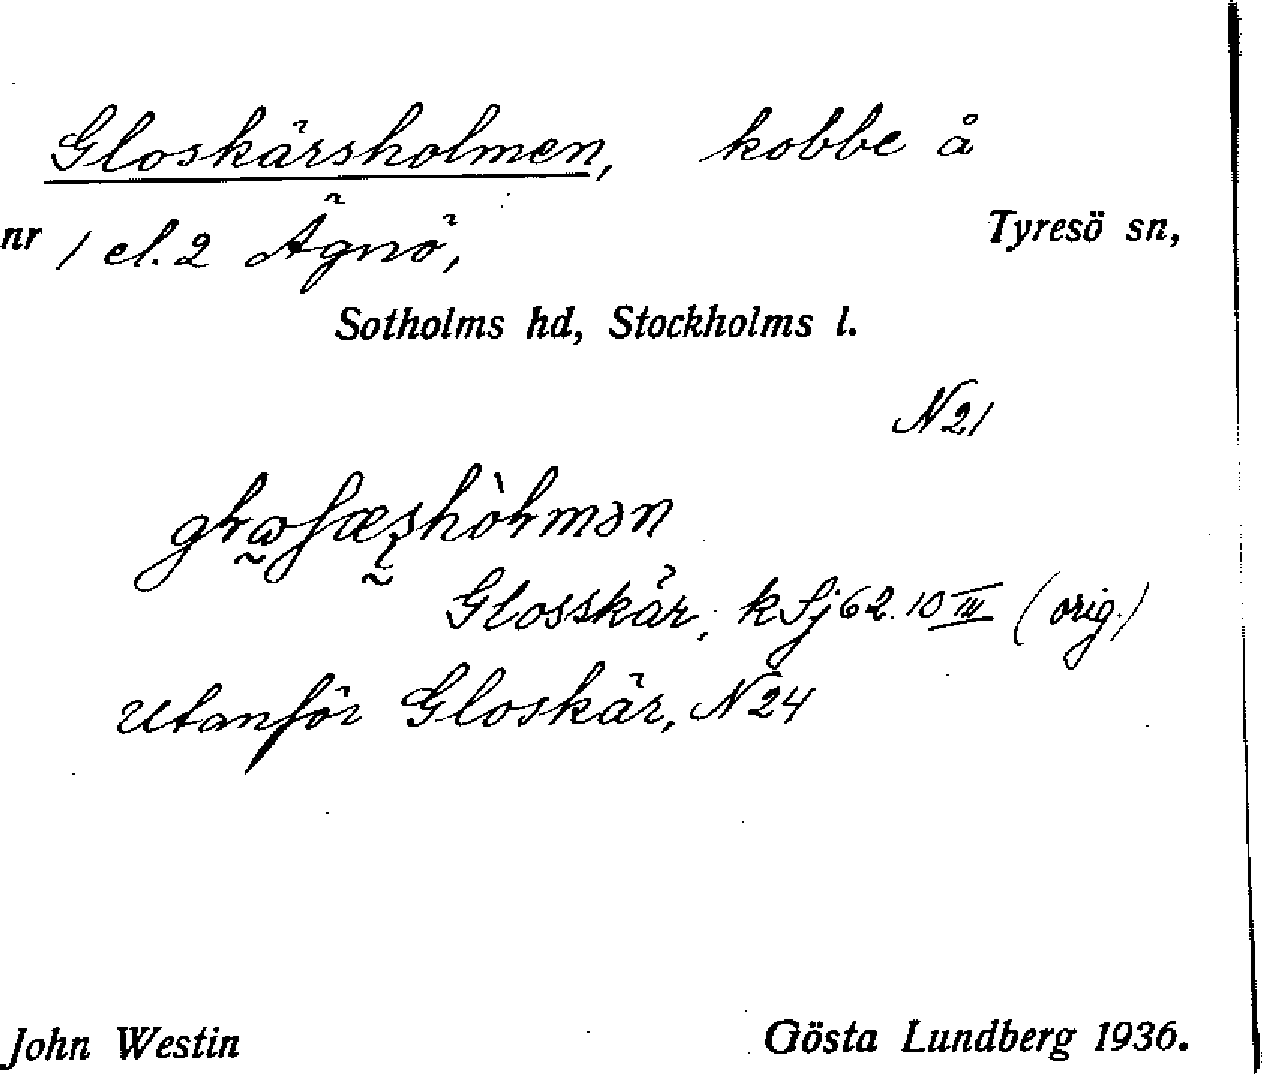 Gloskärsholmen, kobbe å
nr 1 el. 2 Ägnö, Tyresö sn,
Sotholms hd, Stockholms l.
N 21
Glosskär, k Sj 62. 10 III (orig.)
Utanför Gloskär, N 24
John Westin Gösta Lundberg 1936.